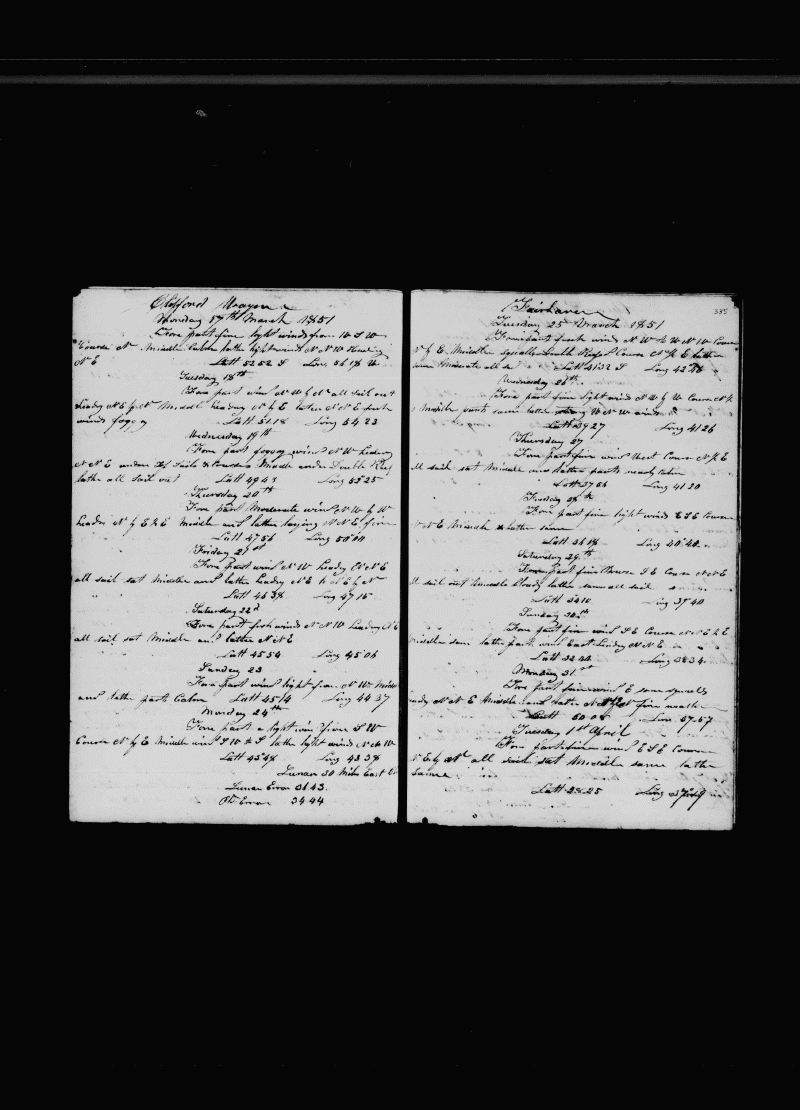 Clifford Wayne
Monday 17th March 1851
Fore part fine light winds from W S W
Course N Middle Calm latter light winds N N W Heading
N E Latt 52 52 S Long 56 18 W
Tuesday 18th
Fore part wind N W by N all sail out
Heading N E by N Middle heading N by E latter N N E fresh
winds foggy Latt 51.18 Long 54 23
Wednesday 19th
Fore part foggy wind N W Heading
N N E under Sails & Courses Middle under Double Reef
latter all sail out Latt 49 43 Long 52 25
Thursday 20th
Fore part Moderate wind N W by W
Heades N by E & E Middle and latter laying N N E fine
Latt 47 56 Long 50 00
Friday 21st
Fore part wind N W Heading N N E
all sail set Middle and latter Heading N E & N E by N
Latt 46 38 Long 47 15
Saturday 22d
Fore part fresh winds N N W Heading N E
all sail set Middle and latter N N E
Latt 45 54 Long 45 06
Sunday 23
Fore part wind light from N W Middle
and latter part Calm Latt 45 14 Long 44 37
Monday 24th
Fore part a light wind from S W
Course N by E Middle wind S W & S latter light winds N & W
Latt 43 48 Long 43 38
Lunar 30 Miles East
Lunar Error 36 43
Error 34 44
Fairhaven
335
Tuesday 25 March 1851
Fore part fresh winds N W & W N W Course
N by E Middle squally Double Reefs Course N by E latter
Moderate all Latt 41 32 S Long 42 48
Wednesday 26th
Fore part fine light wind N W by W Course N by
E Middle winds same latter W N W winds
Latt 39 27 Long 41 26
Thursday 27
Fore part fine wind West Course N by E
all sail set Middle and latter parts nearly Calm
Latt 37 56 Long 41 20
Friday 28th
Fore part fine light winds E S E Course
N N E Middle & latter same
Latt 36 18 Long 40 40
Saturday 29th
Fore part fine Breeze S E Course N N E
all sail out Middle Cloudy latter same all sail
Latt 34 10 Long 39 40
Sunday 30th
Fore part fine wind S E Course N N E & E
Middle same latter part wind East Heading N N E
Latt 32 44 Long 38 34
Monday 31st
Fore part fair wind E some squalls
heady N N E Middle and latter fine weather
Latt 30 08 Long 37.57
Tuesday 1st April
Fore part fine wind E S E Course
N E by N all sail set Middle same latter
same
Latt 28 25 Long